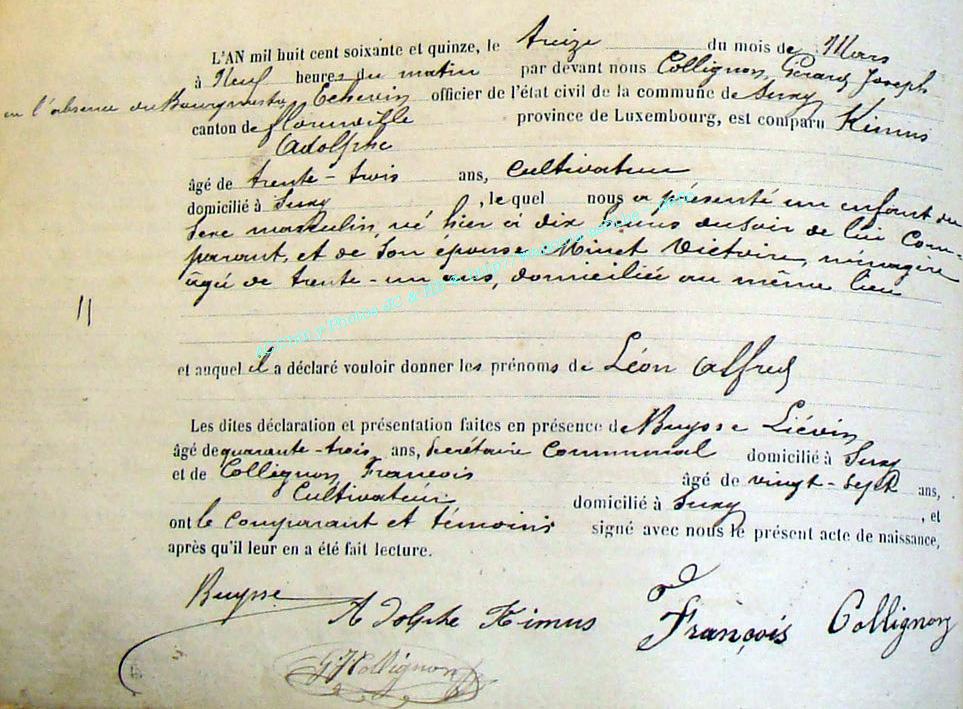 L'AN mil huit cent soixante et quinze, le treize du mois de Mars
à Neuf heures du matin par devant nous Collignon, Gérard Joseph
en l'absence du Bourgmestre Echevin officier de l'état civil de la commune de Suxy
canton de Florenville province de Luxembourg, est comparu Kimus
Adolphe
âgé de trente-trois ans, Cultivateur
domicilié à Suxy, lequel nous a présenté un enfant du
Sexe masculin, né hier à dix heures du soir de lui Com-
parant, et de Son épouse Minet Victoire, ménagère
âgée de trente-un ans, domiciliée au même lieu
et auquel il a déclaré vouloir donner les prénoms de Léon Alfred
Les dites déclaration et présentation faites en présence de Buysse Liévin
âgé de quarante-trois ans, Secrétaire Communal domicilié à Suxy
et de Collignon François âgé de vingt-sept ans,
Cultivateur domicilié à Suxy, et
ont le comparant et témoins signé avec nous le présent acte de naissance,
après qu'il leur en a été fait lecture.
Buysse
Adolphe Kimus
François Collignon
GJCollignon